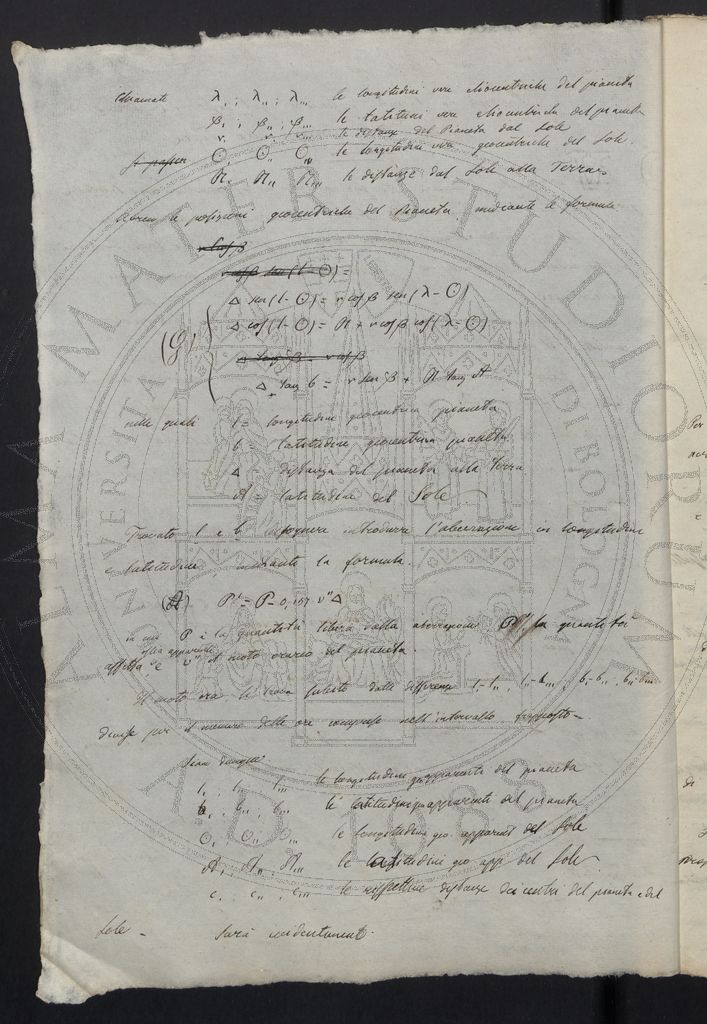 Chiamate λ, ; λ,, ; λ,,, le longitudini vere eliocentriche del pianeta
β, ; β,, ; β,,, le latitudini vere eliocentriche del pianeta
r, r,, r,,, le distanze del Pianeta dal Sole
☉, ☉,, ☉,,, le longitudini vere geocentriche del Sole.
R, R,, R,,, le distanze dal Sole alla Terra
le posizioni geocentriche del Pianeta mediante le formule
r cos β
r cos β sen (l - ☉) =
Δ sen (l - ☉) = r cos β sen (λ - ☉)
(g) Δ cos (l - ☉) = R + r cos β cos (λ - ☉)
Δ tang b = r sen β + R tang A
nelle quali l = longitudine geocentrica pianeta
b = latitudine geocentrica pianeta
Δ = distanza del pianeta alla Terra
A = latitudine del Sole
Trovato l e b bisognerà introdurre l'aberrazione in longitudine
e latitudine mediante la formula.
(A) P' = P - 0,157 v'' Δ
in cui P è la quantità libera dalla aberrazione P' la quantità
ossia apparente
affetta, e v'' il moto orario del pianeta.
Il moto ora si trova subito dalle differenze l,-l,, ; l,,-l,,, ; b,-b,, ; b,,-b,,,
divise per il numero delle ore comprese nell'intervallo
Sian dunque
l, l,, l,,, le longitudini geo apparenti del pianeta
b, b,, b,,, le latitudini geo apparenti del pianeta
☉, ☉,, ☉,,, le longitudini geo. apparenti del Sole
A, A,, A,,, le latitudini geo app. del Sole
e, e,, e,,, le rispettive distanze dei centri del pianeta e del
Sole - Sarà evidentemente
ALMA MATER STUDIORUM
UNIVERSITÀ DI BOLOGNA
A.D. 1088